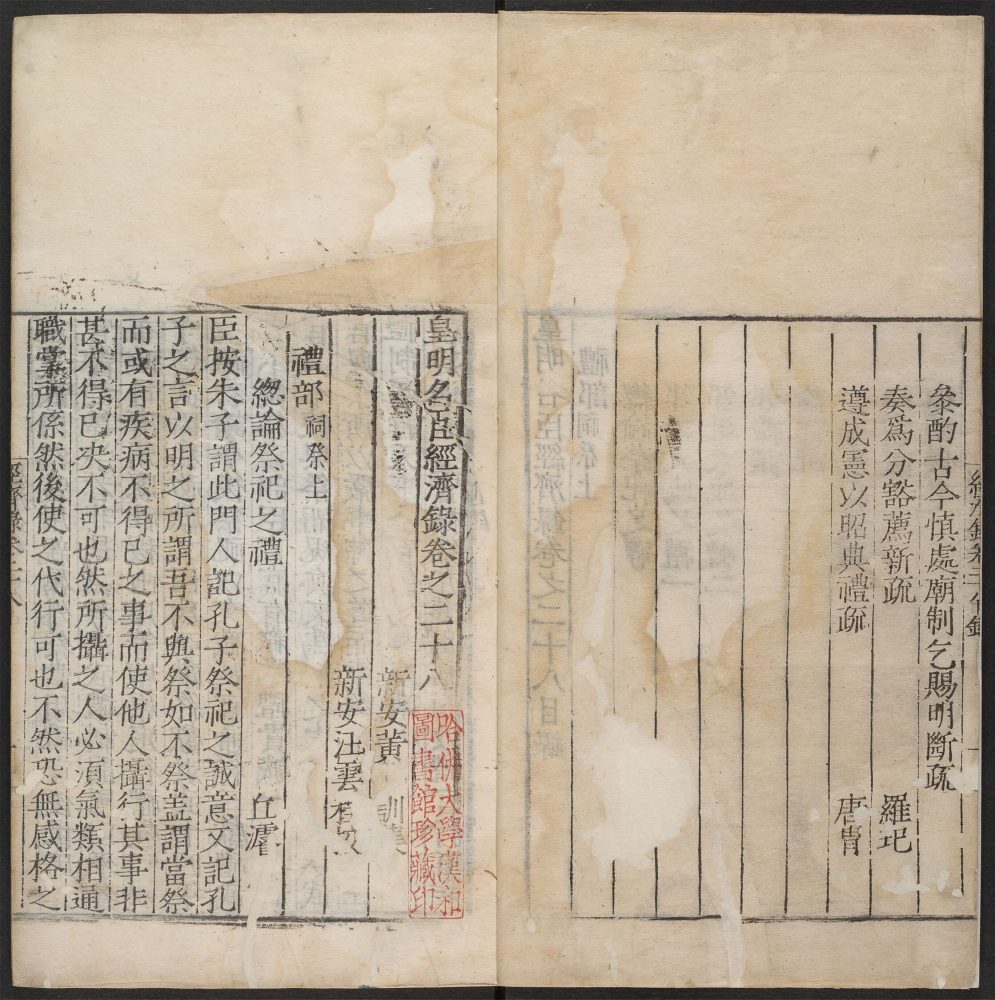 參酌古今慎處廟制乞賜明斷疏
奏為分豁薦新疏 羅玘
遵成憲以昭典禮疏 唐胄
皇明名臣經濟錄卷之二十八
新安黃訓
新安汪雲
禮部 祠祭上
總論祭祀之禮 丘濬
臣按朱子謂此門人記孔子祭祀之誠意又記孔
子之言以明之所謂吾不與祭如不祭盖謂當祭
而或有疾病不得已之事而使他人攝行其事非
甚不得已决不可也然所攝之人必須氣類相通
職掌所係然後使之代行可也不然恐無感格之
經濟錄卷二十八
哈佛大學漢和
圖書館珍藏印